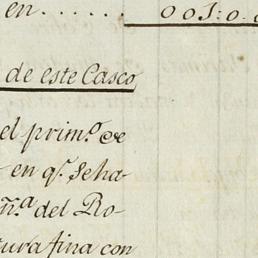 en...... 001:0.
de este Casco
el prim.º de
en q.e se ha
ñ.a del Ro-
tura fina con